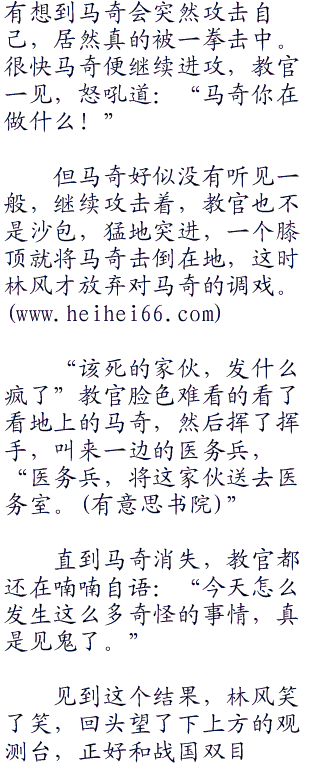 有想到马奇会突然攻击自
己，居然真的被一拳击中。
很快马奇便继续进攻，教官
一见，怒吼道：“马奇你在
做什么！”
但马奇好似没有听见一
般，继续攻击着，教官也不
是沙包，猛地突进，一个膝
顶就将马奇击倒在地，这时
林风才放弃对马奇的调戏。
(www.heihei66.com)
“该死的家伙，发什么
疯了”教官脸色难看的看了
看地上的马奇，然后挥了挥
手，叫来一边的医务兵，
“医务兵，将这家伙送去医
务室。(有意思书院)”
直到马奇消失，教官都
还在喃喃自语：“今天怎么
发生这么多奇怪的事情，真
是见鬼了。”
见到这个结果，林风笑
了笑，回头望了下上方的观
测台，正好和战国双目